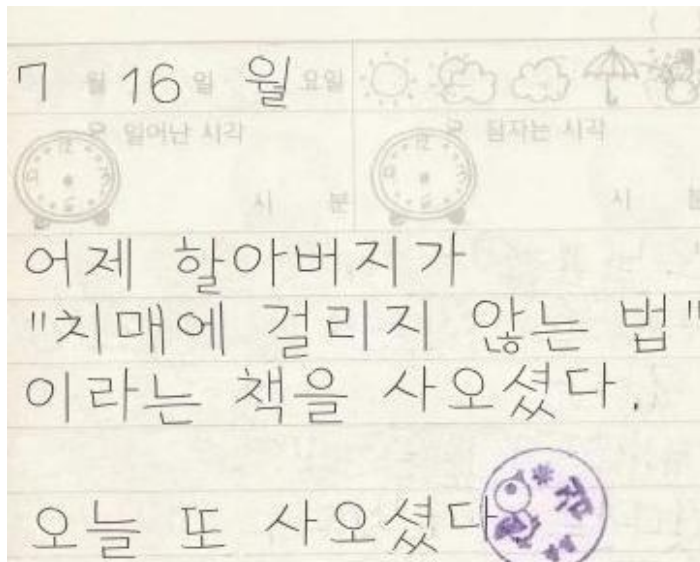 7 월 16 일 월 요일
일어난 시각 잠자는 시각
시 분 시
어제 할아버지가
"치매에 걸리지 않는 법"
이라는 책을 사오셨다.
오늘 또 사오셨다